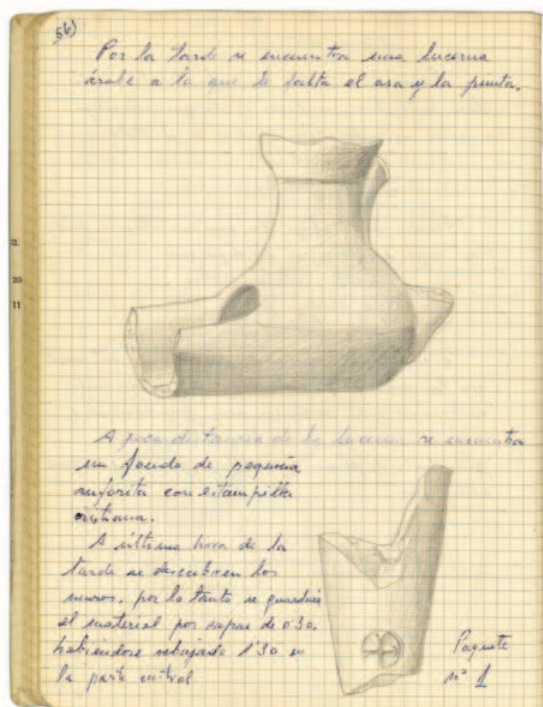 56)
Por la tarde se encuentra una lucerna
árabe a la que le falta el asa y la punta.
A poca distancia de la lucerna se encuentra
un fondo de pequeña
anforita con estampilla
cristiana.
A última hora de la
tarde se descubren los
muros, por lo tanto se guardará
el material por capas de 0'30,
habiéndose rebajado 1'30 en
la parte central
Paquete
nº 1
2.
20
11